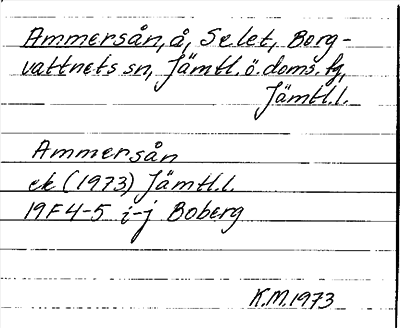 Ammersån, å, Selet, Borg-
vattnets sn, Jämtl. ö. doms. fg,
Jämtl.l.
Ammersån
ek (1973) Jämtl.l.
19F 4-5 i-j Boberg
K.M. 1973